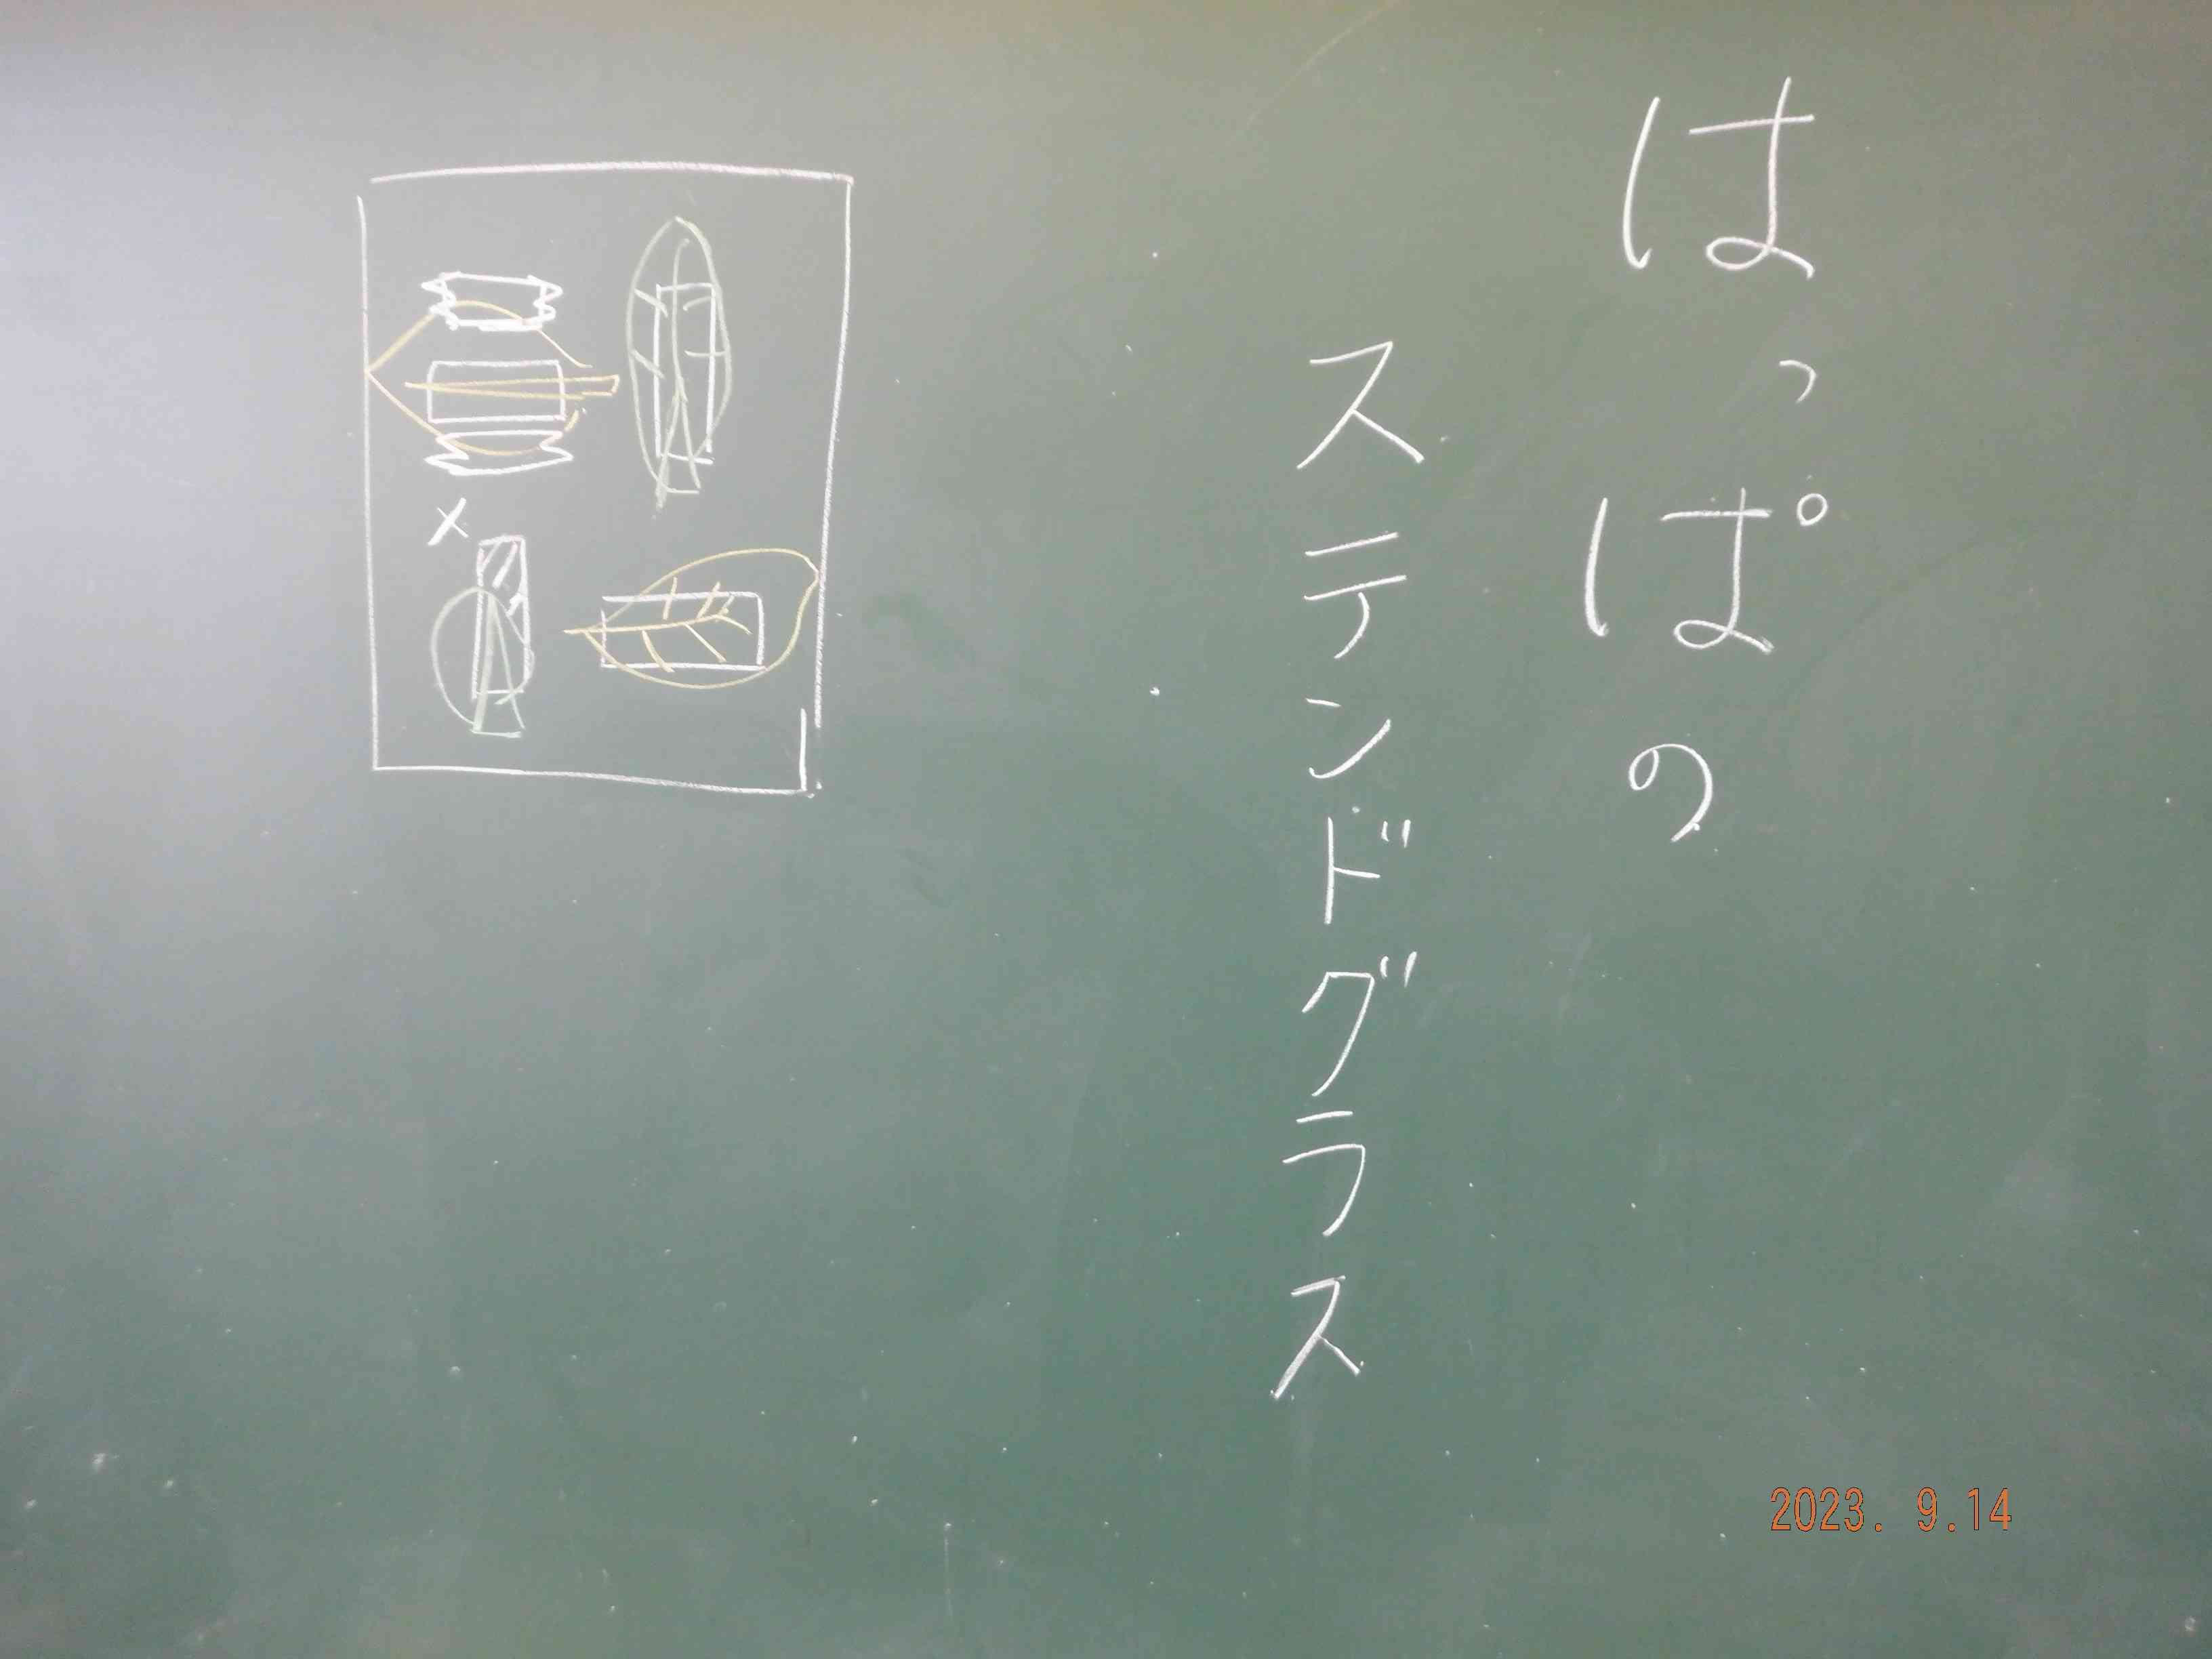 はっぱの
ステンドグラス
×
2023. 9.14